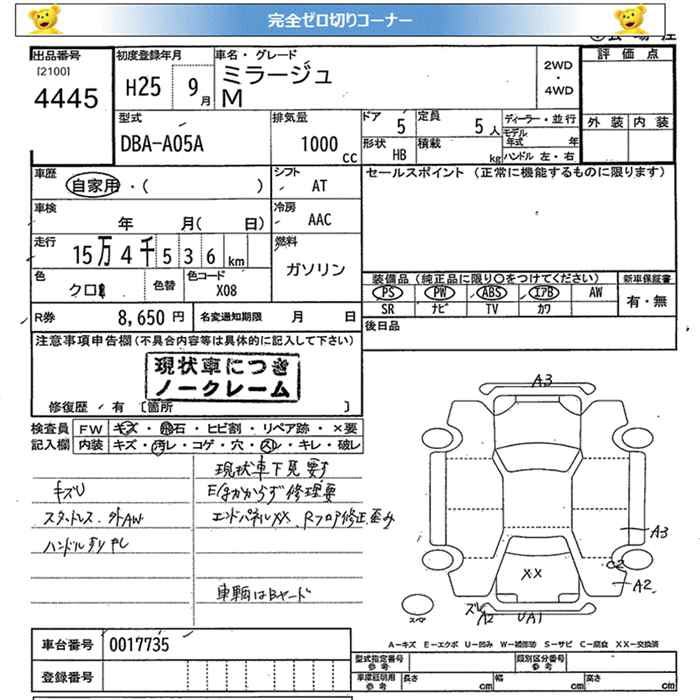 完全ゼロ切りコーナー
出品番号
[2100]
4445
初度登録年月
H25 9月
車名・グレード
ミラージュ
M
2WD
・
4WD
評価点
外装 内装
型式
DBA-A05A
排気量
1000 cc
ドア 5
定員 5人
形状 HB
積載 kg
ディーラー・並行
モデル年式 年
ハンドル 左・右
車歴
自家用・( )
シフト
AT
セールスポイント (正常に機能するものに限ります)
車検
年 月( 日)
冷房
AAC
走行
15万4千536 km
燃料
ガソリン
色
クロ
色替
色コード
X08
装備品 (純正品に限り○をつけてください)
PS PW ABS エアB AW
SR ナビ TV カワ
新車保証書
有・無
R券 8,650 円
名変通知期限 月 日
後日品
注意事項申告欄(不具合内容等は具体的に記入して下さい)
現状車につき
ノークレーム
修復歴・有 [箇所 ]
検査員
記入欄
FW キズ・飛石・ヒビ割・リペア跡・×要
内装 キズ・汚レ・コゲ・穴・スレ・キレ・破レ
現状車下見要す
キズU
Eはかからず修理要
スタットレス.外AW
エンドパネルXX、Rフロア修正.歪み
ハンドルすりヤレ
車輌はBヤード
A3
A3
C2
A2
XX
スペア
ズレ
A2
UA1
車台番号 0017735
登録番号
A-キズ E-エクボ U-凹み W-補修跡 S-サビ C-腐食 XX-交換済
型式指定番号
参考
類別区分番号
参考
車庫証明用
参考
長さ cm 幅 cm 高さ cm